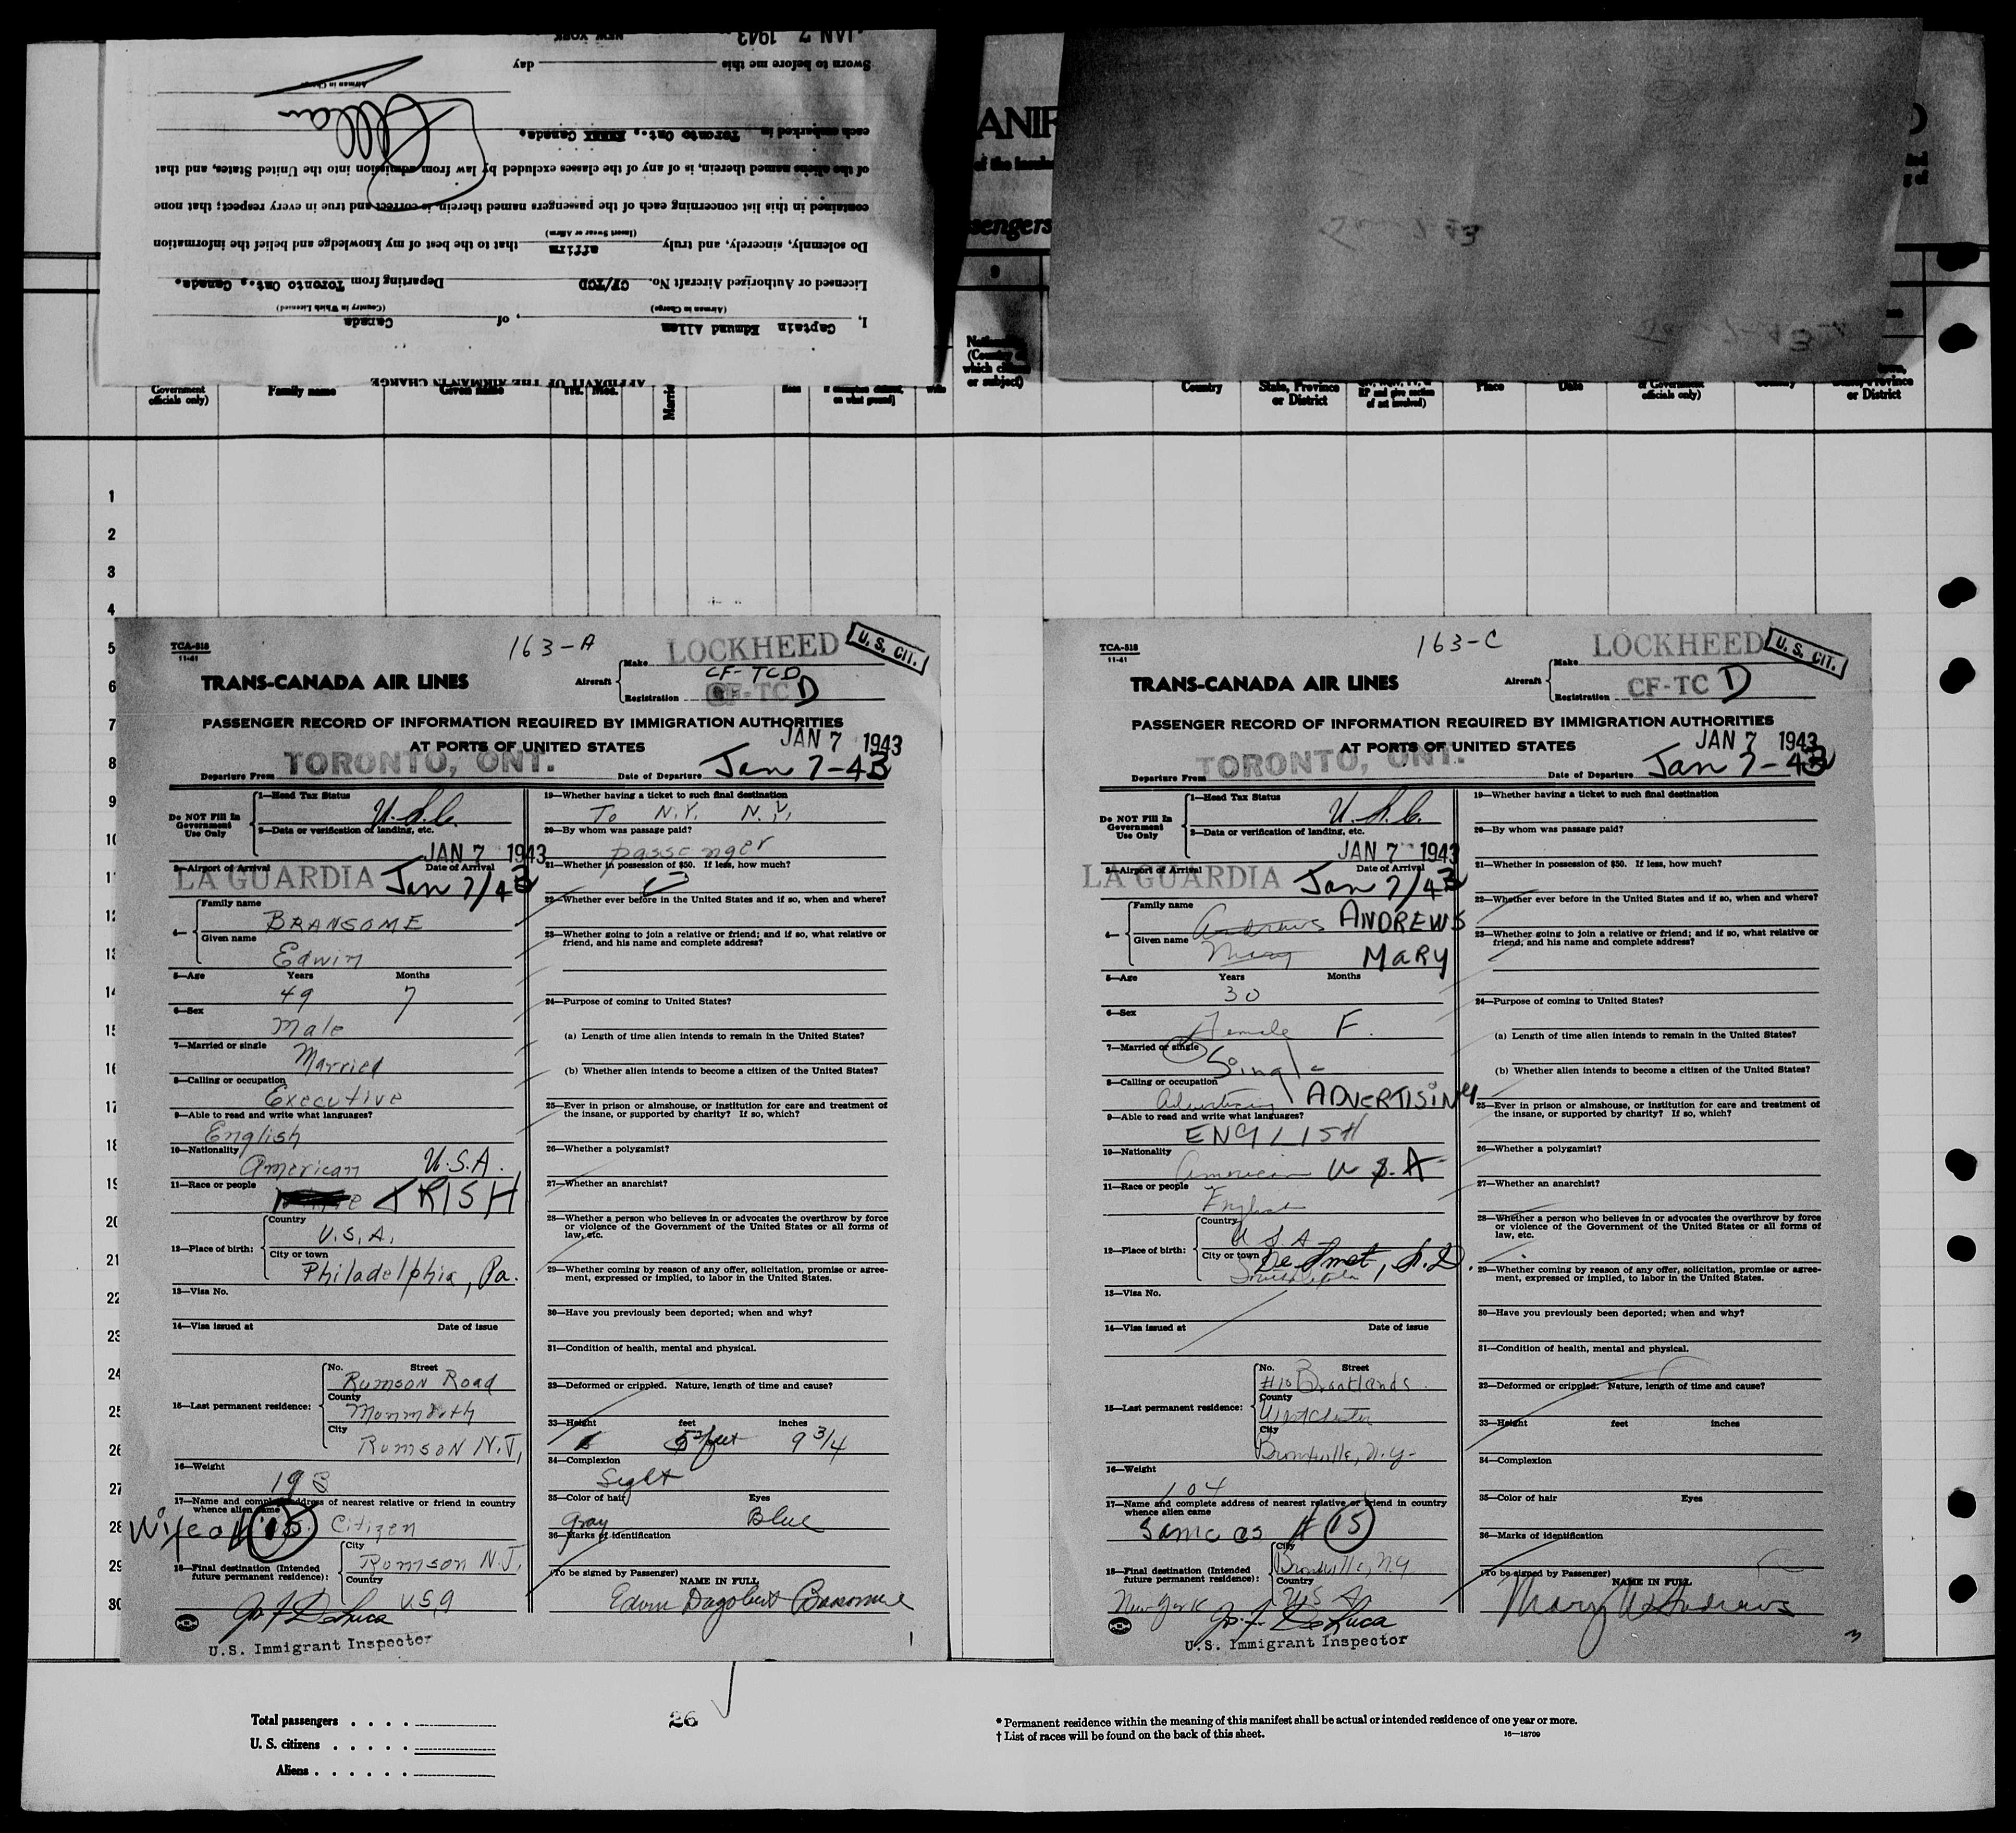 JAN 7 1943 NEW YORK
Sworn to before me this day
Airman in Charge
each embarked in Toronto Ont., Canada.
of the aliens named therein, is of any of the classes excluded by law from admission into the United States, and that
contained in this list concerning each of the passengers named therein, is correct and true in every respect; that none
(Insert Swear or Affirm)
Do solemnly, sincerely, and truly affirm that to the best of my knowledge and belief the information
Licensed or Authorized Aircraft No. CF/TCD Departing from Toronto Ont., Canada.
(Airman in Charge) (Country in Which Licensed)
I, Captain Edmund Allen, of Canada
AFFIDAVIT OF THE AIRMAN IN CHARGE
ANIF
sengers
9
which
or subject)
Government
officials only)
Family name
Given name
Yrs. Mos.
Country
State, Province
or District
Place
Date
of Government
officials only)
Province
or District
1
2
3
4
5
6
7
8
9
10
11
12
13
14
15
16
17
18
19
20
21
22
23
24
25
26
27
28
29
30
TCA-518
11-41
163-A
Aircraft
Make LOCKHEED
U. S. CIT.
CF-TCD
Registration CF-TC D
TRANS-CANADA AIR LINES
PASSENGER RECORD OF INFORMATION REQUIRED BY IMMIGRATION AUTHORITIES
AT PORTS OF UNITED STATES
JAN 7 1943
Departure From TORONTO, ONT. Date of Departure Jan 7-43
Do NOT Fill In
Government
Use Only
1—Head Tax Status
U.S.C.
2—Data or verification of landing, etc.
JAN 7 1943
3—Airport of Arrival Date of Arrival
LA GUARDIA Jan 7/43
4— Family name
BRANSOME
Given name
Edwin
5—Age Years Months
49 7
6—Sex
Male
7—Married or single
Married
8—Calling or occupation
Executive
9—Able to read and write what languages?
English
10—Nationality
American U.S.A.
11—Race or people
IRISH
12—Place of birth:
Country
U.S.A.
City or town
Philadelphia, Pa.
13—Visa No.
14—Visa issued at Date of issue
15—Last permanent residence:
No. Street
Rumson Road
County
Monmouth
City
Rumson N.J.
16—Weight
198
17—Name and complete address of nearest relative or friend in country
whence alien came
Wife # 15. Citizen
18—Final destination (Intended
future permanent residence):
City
Rumson N.J.
Country
U.S.A
Jo. F DeLuca
U.S. Immigrant Inspector
19—Whether having a ticket to such final destination
To N.Y. N.Y.
20—By whom was passage paid?
passenger
21—Whether in possession of $50. If less, how much?
22—Whether ever before in the United States and if so, when and where?
23—Whether going to join a relative or friend; and if so, what relative or
friend, and his name and complete address?
24—Purpose of coming to United States?
(a) Length of time alien intends to remain in the United States?
(b) Whether alien intends to become a citizen of the United States?
25—Ever in prison or almshouse, or institution for care and treatment of
the insane, or supported by charity? If so, which?
26—Whether a polygamist?
27—Whether an anarchist?
28—Whether a person who believes in or advocates the overthrow by force
or violence of the Government of the United States or all forms of
law, etc.
29—Whether coming by reason of any offer, solicitation, promise or agree-
ment, expressed or implied, to labor in the United States.
30—Have you previously been deported; when and why?
31—Condition of health, mental and physical.
32—Deformed or crippled. Nature, length of time and cause?
33—Height feet inches
5 feet 9 3/4
34—Complexion
35—Color of hair Eyes
Gray Blue
36—Marks of identification
(To be signed by Passenger)
NAME IN FULL
Edwin Dagobert Bransome
1
TCA-518
11-41
163-C
Aircraft
Make LOCKHEED
U. S. CIT.
Registration CF-TC D
TRANS-CANADA AIR LINES
PASSENGER RECORD OF INFORMATION REQUIRED BY IMMIGRATION AUTHORITIES
AT PORTS OF UNITED STATES
JAN 7 1943
Departure From TORONTO, ONT. Date of Departure Jan 7-43
Do NOT Fill In
Government
Use Only
1—Head Tax Status
U.S.C.
2—Data or verification of landing, etc.
JAN 7 1943
3—Airport of Arrival Date of Arrival
LA GUARDIA Jan 7/43
4— Family name
Andrews ANDREWS
Given name
Mary MARY
5—Age Years Months
30
6—Sex
Female F.
7—Married or single
Single
8—Calling or occupation
Advertising ADVERTISING
9—Able to read and write what languages?
ENGLISH
10—Nationality
American U.S.A
11—Race or people
English
12—Place of birth:
Country
U S A
City or town De Smet, S.D.
South Dakota
13—Visa No.
14—Visa issued at Date of issue
15—Last permanent residence:
No. Street
#10 Brooklands
County
Westchester
City
Bronxville, N.Y.
16—Weight
104
17—Name and complete address of nearest relative or friend in country
whence alien came
Same as # 15
18—Final destination (Intended
future permanent residence):
City
Bronxville, NY
Country
New York U S A
Jo. F DeLuca
U.S. Immigrant Inspector
19—Whether having a ticket to such final destination
20—By whom was passage paid?
21—Whether in possession of $50. If less, how much?
22—Whether ever before in the United States and if so, when and where?
23—Whether going to join a relative or friend; and if so, what relative or
friend, and his name and complete address?
24—Purpose of coming to United States?
(a) Length of time alien intends to remain in the United States?
(b) Whether alien intends to become a citizen of the United States?
25—Ever in prison or almshouse, or institution for care and treatment of
the insane, or supported by charity? If so, which?
26—Whether a polygamist?
27—Whether an anarchist?
28—Whether a person who believes in or advocates the overthrow by force
or violence of the Government of the United States or all forms of
law, etc.
29—Whether coming by reason of any offer, solicitation, promise or agree-
ment, expressed or implied, to labor in the United States.
30—Have you previously been deported; when and why?
31—Condition of health, mental and physical.
32—Deformed or crippled. Nature, length of time and cause?
33—Height feet inches
34—Complexion
35—Color of hair Eyes
36—Marks of identification
(To be signed by Passenger)
NAME IN FULL
Mary Andrews
3
Total passengers . . . .
U. S. citizens . . . . .
Aliens . . . . . .
26
* Permanent residence within the meaning of this manifest shall be actual or intended residence of one year or more.
† List of races will be found on the back of this sheet.
16—18709